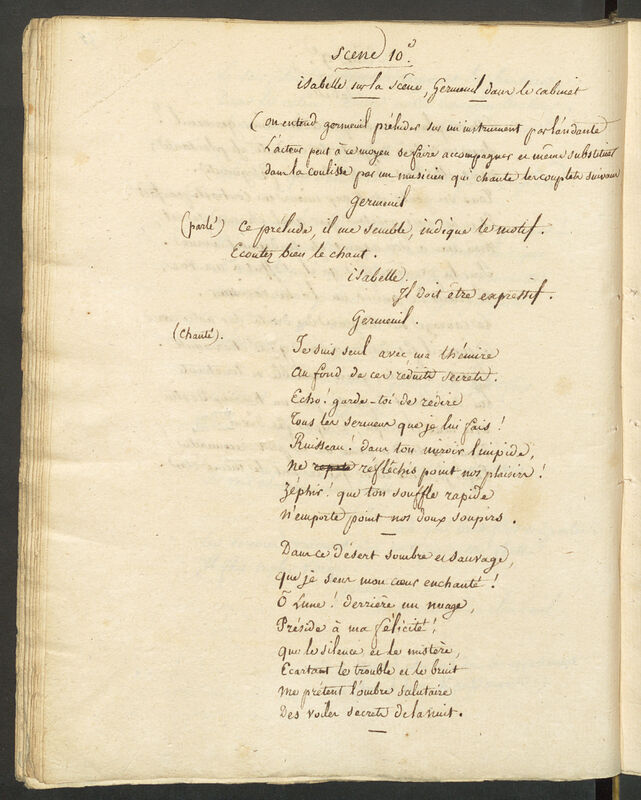 Scene 10e
isabelle sur la scène, Germeuil dans le cabinet
(on entend germeuil préluder sur un instrument par l'andante
L'acteur peut à ce moyen se faire accompagner et même substituer
dans la coulisse par un musicien qui chante les couplets suivans
germeuil
(parlé) Ce prélude, il me semble, indique le motif.
Ecoutez bien le chant.
isabelle.
Il doit être expressif.
Germeuil.
(chanté).
Je suis seul avec ma thémire
au fond de ces réduits secrets.
Echo! garde-toi de redire
Tous les sermens que je lui fais!
Ruisseau! dans ton miroir limpide,
ne réfléchis point nos plaisirs!
Zéphir! que ton souffle rapide
N'emporte point nos doux soupirs.
Dans ce désert sombre et sauvage,
que je sens mon cœur enchanté!
Ô Lune! derrière un nuage,
Préside à ma félicité!
que le silence et le mistère,
Ecartant le trouble et le bruit
me prêtent l'ombre salutaire
Des voiles secrets de la nuit.